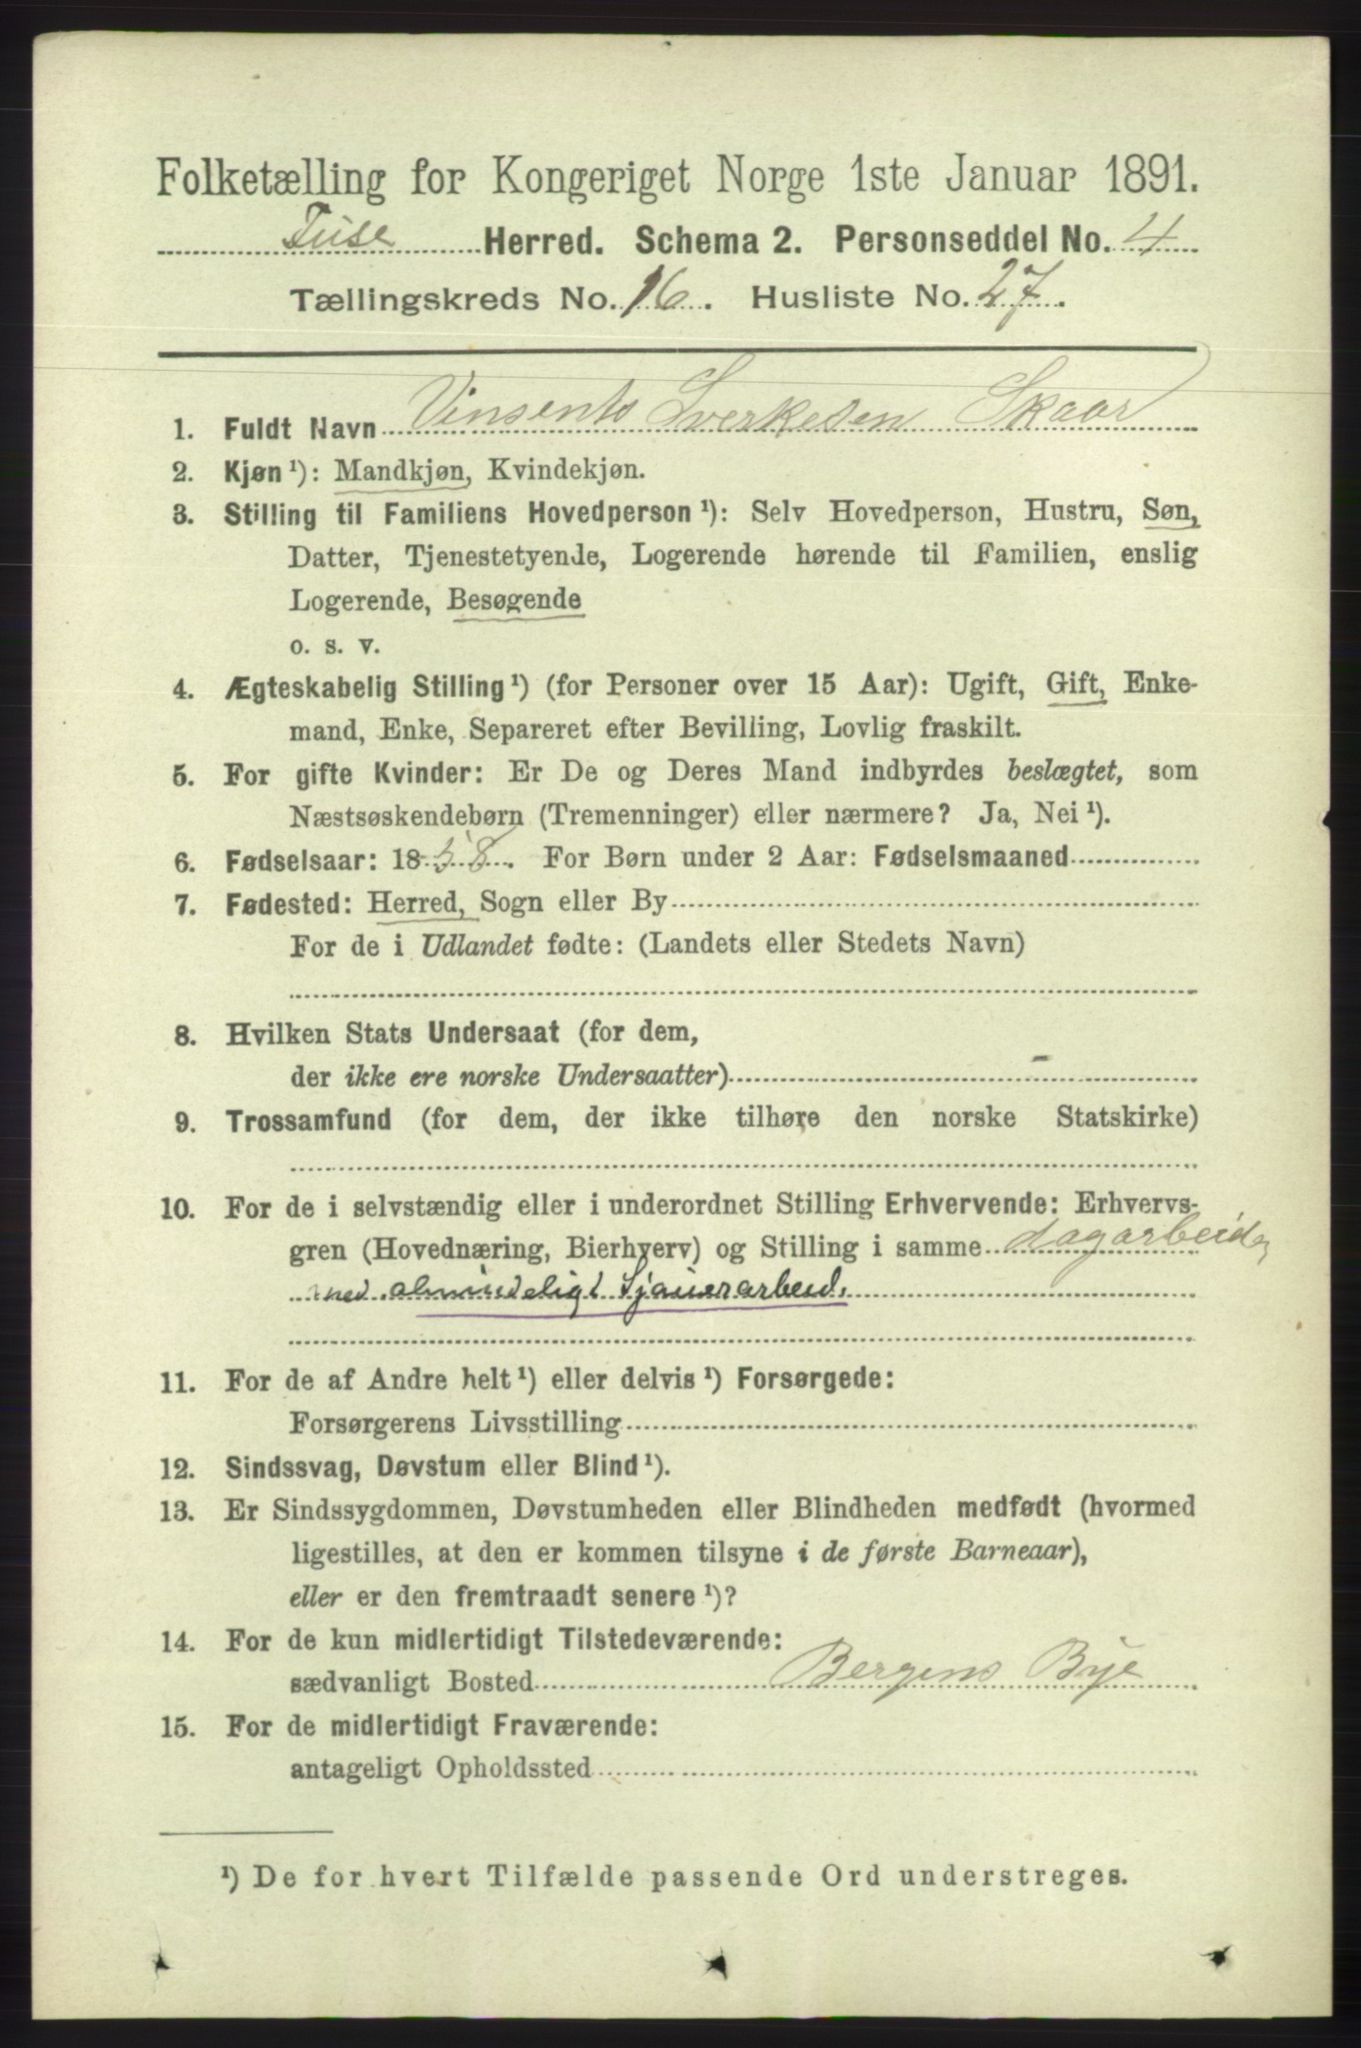 Folketælling for Kongeriget Norge 1ste Januar 1891.
Fuse Herred. Schema 2. Personseddel No. 4
Tællingskreds No. 16. Husliste No. 27.
1. Fuldt Navn Vinsents Sverkesen Skaar
2. Kjøn ¹): Mandkjøn, Kvindekjøn.
3. Stilling til Familiens Hovedperson ¹): Selv Hovedperson, Hustru, Søn,
Datter, Tjenestetyende, Logerende hørende til Familien, enslig
Logerende, Besøgende
o. s. v.
4. Ægteskabelig Stilling ¹) (for Personer over 15 Aar): Ugift, Gift, Enke-
mand, Enke, Separeret efter Bevilling, Lovlig fraskilt.
5. For gifte Kvinder: Er De og Deres Mand indbyrdes beslægtet, som
Næstsøskendebørn (Tremenninger) eller nærmere? Ja, Nei ¹).
6. Fødselsaar: 1858. For Børn under 2 Aar: Fødselsmaaned
7. Fødested: Herred, Sogn eller By
For de i Udlandet fødte: (Landets eller Stedets Navn)
8. Hvilken Stats Undersaat (for dem,
der ikke ere norske Undersaatter) -
9. Trossamfund (for dem, der ikke tilhøre den norske Statskirke)
10. For de i selvstændig eller i underordnet Stilling Erhvervende: Erhvervs-
gren (Hovednæring, Bierhverv) og Stilling i samme dagarbeider
med almindeligt Sjauerarbeid.
11. For de af Andre helt ¹) eller delvis ¹) Forsørgede:
Forsørgerens Livsstilling
12. Sindssvag, Døvstum eller Blind ¹).
13. Er Sindssygdommen, Døvstumheden eller Blindheden medfødt (hvormed
ligestilles, at den er kommen tilsyne i de første Barneaar),
eller er den fremtraadt senere ¹)?
14. For de kun midlertidigt Tilstedeværende:
sædvanligt Bosted Bergens Bye
15. For de midlertidigt Fraværende:
antageligt Opholdssted
¹) De for hvert Tilfælde passende Ord understreges.